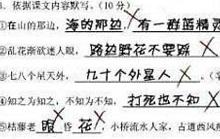 3. 依据课文内容默写。(10分)
①在山的那边，海的那边，有一群蓝精灵
②乱花渐欲迷人眼，路边野花不要踩
③七八个星天外，九十个外星人。
④知之为知之，不知为不知，打死也不知
⑤枯藤老眼昏花，小桥流水人家，古道西风